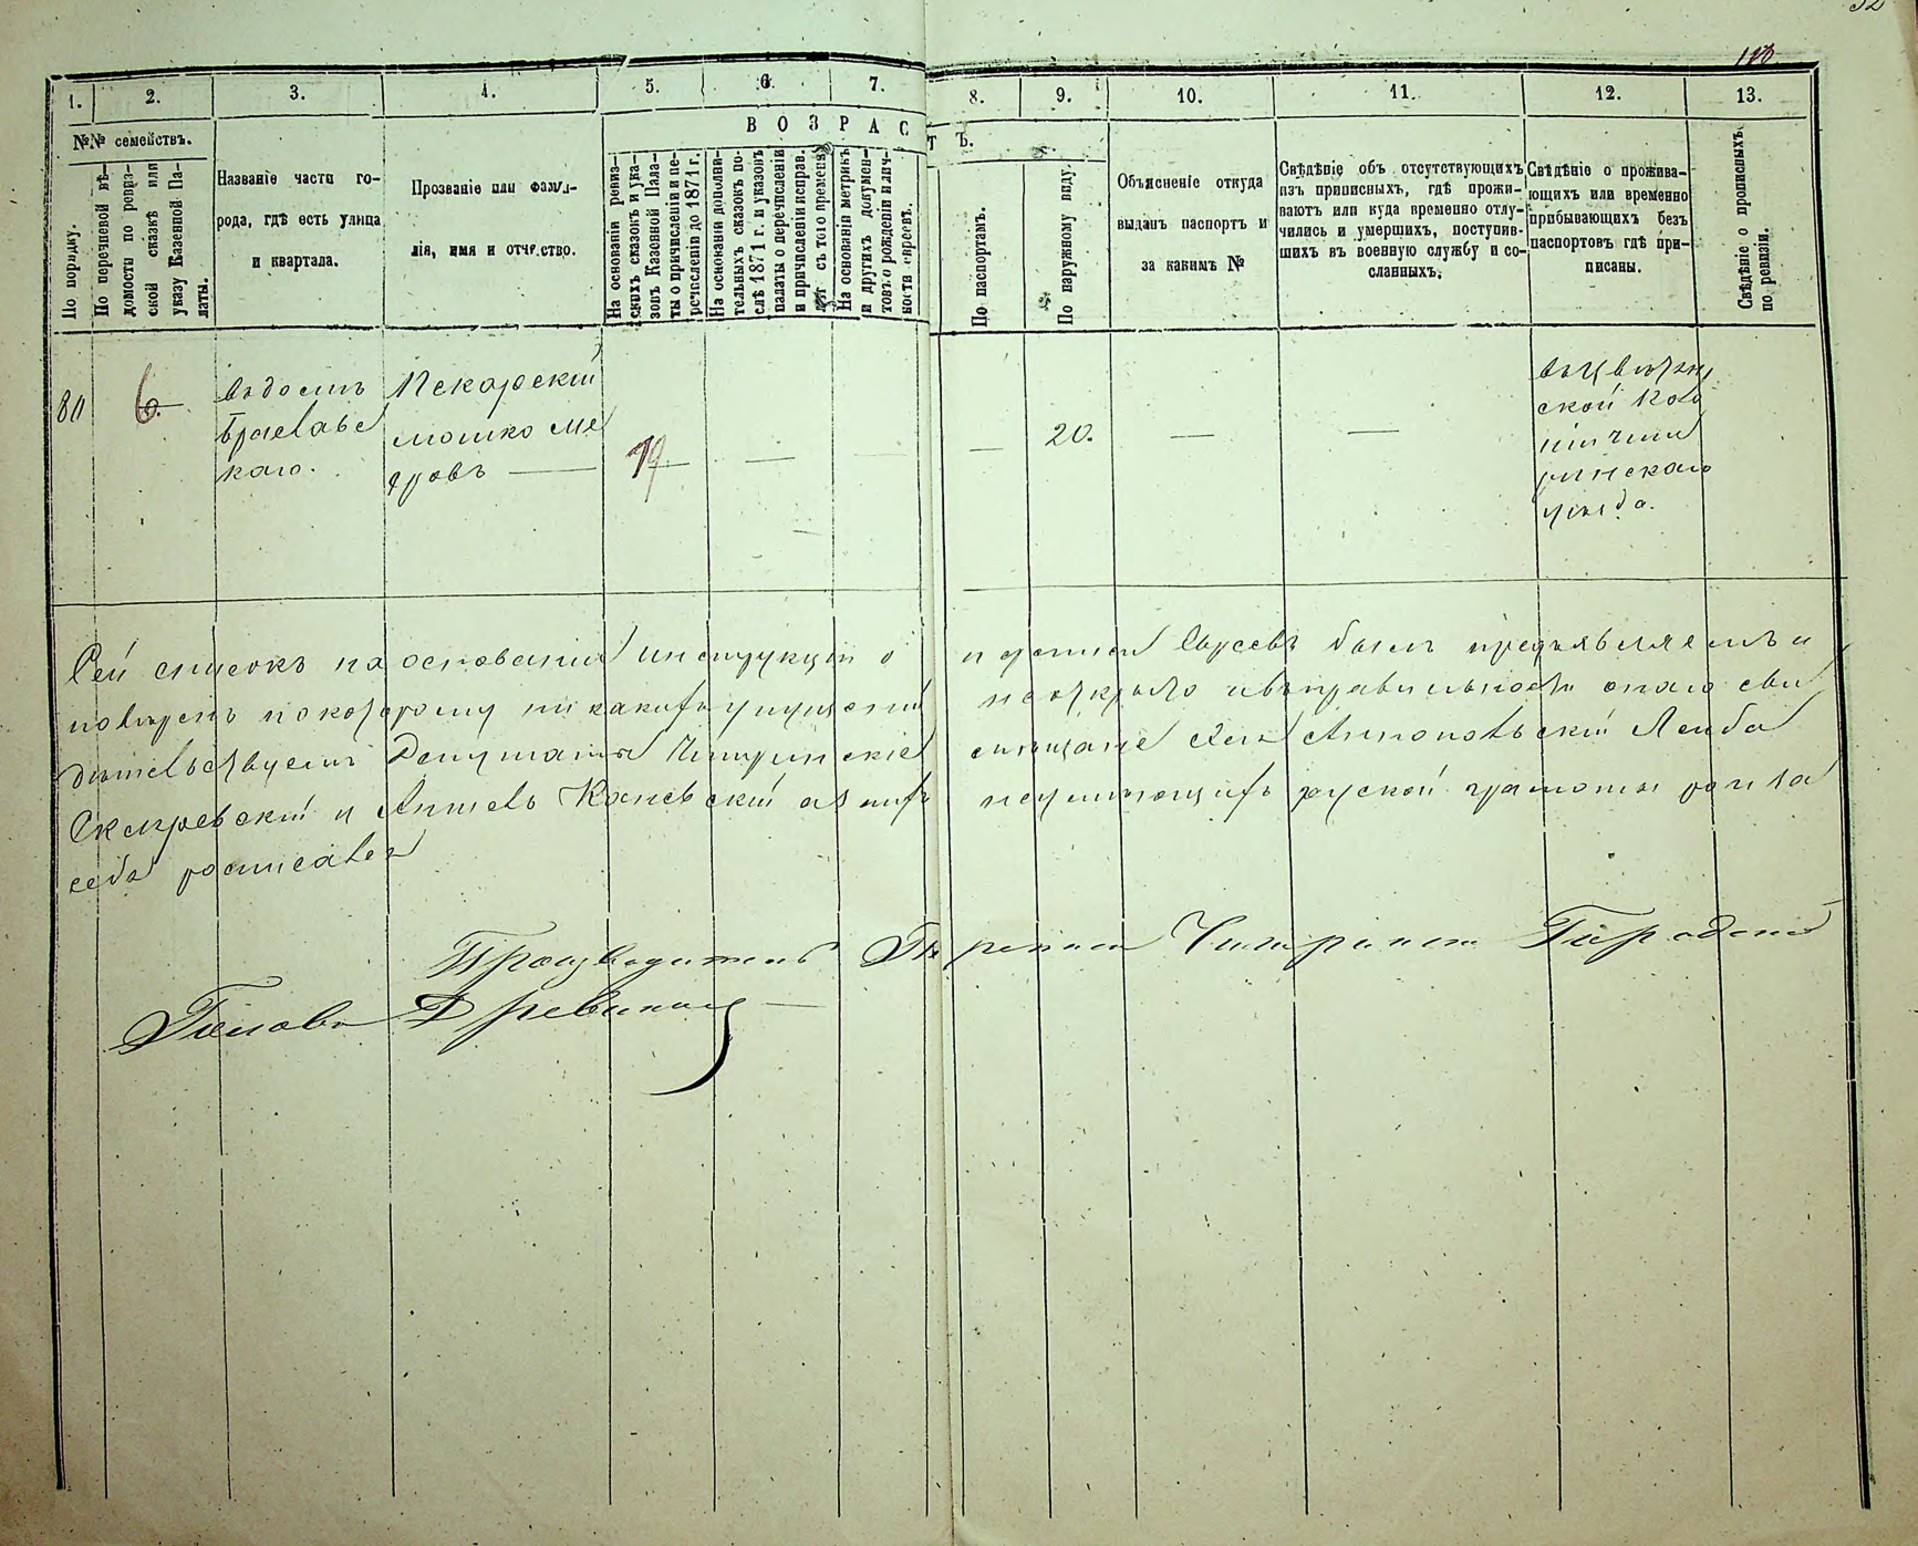 118
1.
2.
3.
4.
5.
6.
7.
8.
9.
10.
11.
12.
13.
№№ семействъ.
По порядку.
По перечневой вѣ-
домости по ревиз-
ской сказкѣ или
указу Казенной Па-
латы.
Названіе части го-
рода, гдѣ есть улица
и квартала.
Прозваніе или фами-
лія, имя и отчество.
ВОЗРАСТЪ.
На основаніи ревиз-
скихъ сказокъ и ука-
зовъ Казенной Пала-
ты о причисленіи и пе-
речисленіи до 1871 г.
На основаніи дополни-
тельныхъ сказокъ по-
слѣ 1871 г. и указовъ
палаты о перечисленіи
и причисленіи исправ.
съ того времени
На основаніи метрикъ
и другихъ докумен-
товъ о рожденіи и лич-
ности евреевъ.
По паспортамъ.
По наружному виду.
Объясненіе откуда
выданъ паспортъ и
за какимъ №
Свѣдѣніе объ отсутствующихъ
изъ приписныхъ, гдѣ прожи-
ваютъ или куда временно отлу-
чились и умершихъ, поступив-
шихъ въ военную службу и со-
сланныхъ.
Свѣдѣніе о прожива-
ющихъ или временно
прибывающихъ безъ
паспортовъ гдѣ при-
писаны.
Свѣдѣніе о прописныхъ
по ревизіи.
80
6.
въ домѣ
Браславс
каго.
Пекарскій
Мошко Ме
ровъ
19
20.
ской Коло
ніи Чиги
ринскаго
уѣзда.
Сей списокъ на основаніи инструкціи о
повѣренъ по которому никакихъ упущеній
дѣтельствуемъ Депутаты Чигиринскіе
и Аншель Каневскій а за нихъ
себя росписався
Евреевъ былъ предъявляемъ и
не открыто и въ правильности онаго сви
мещане Лейба
неумеющихъ руской грамоты и за
Производитель Чигиринскій Городской
Голова